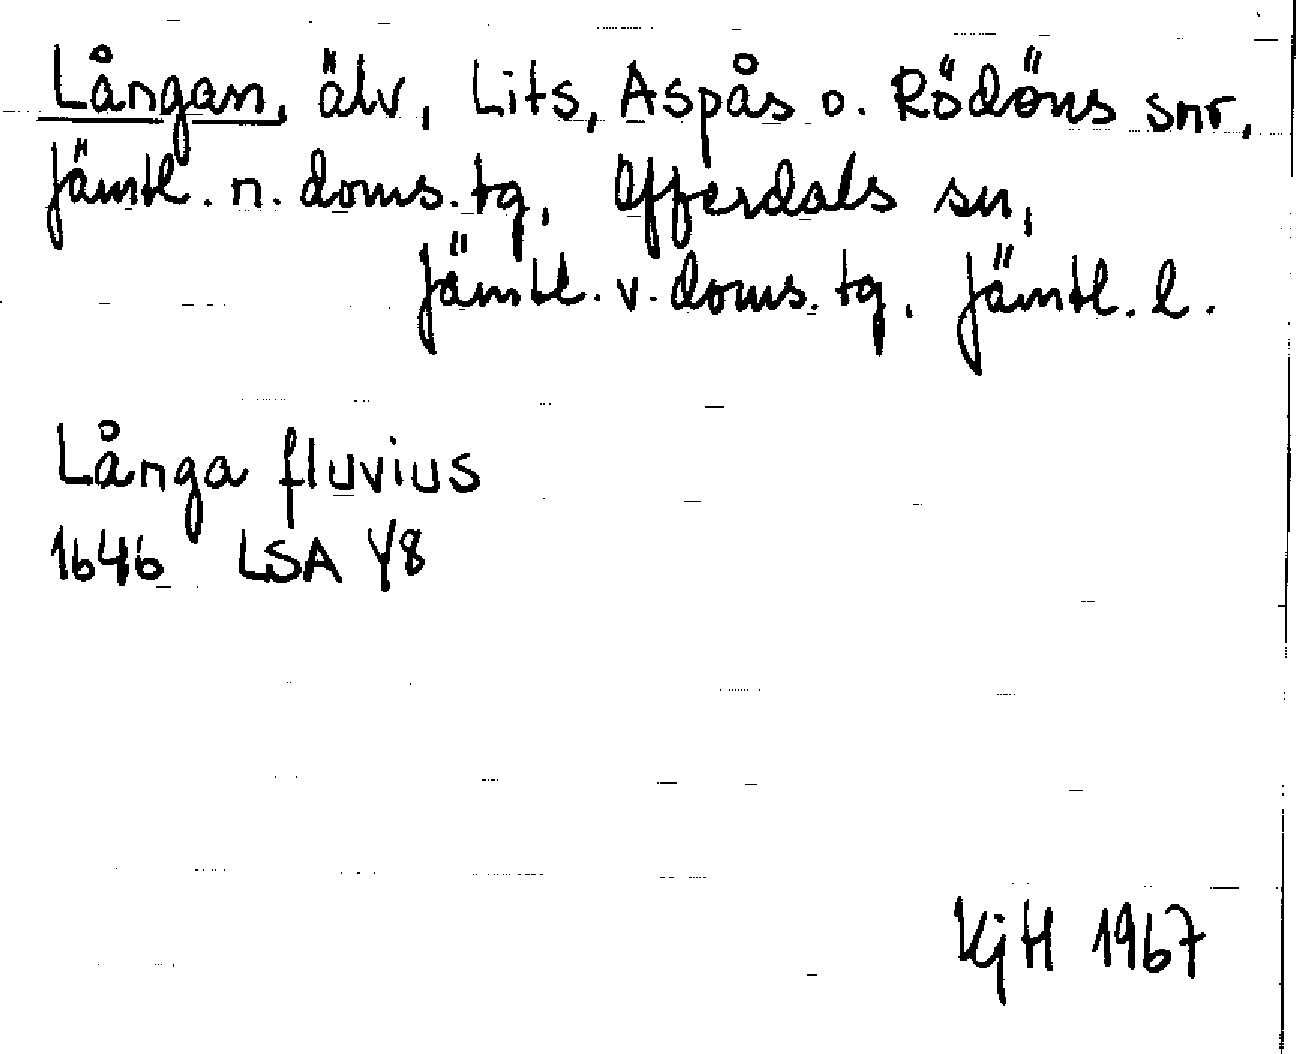 Långan, älv, Lits, Aspås o. Rödöns snr,
Jämtl. n. doms. tg, Offerdals sn,
Jämtl. v. doms. tg, Jämtl. l.
Långa fluvius
1646 LSA Y8
KjH 1967